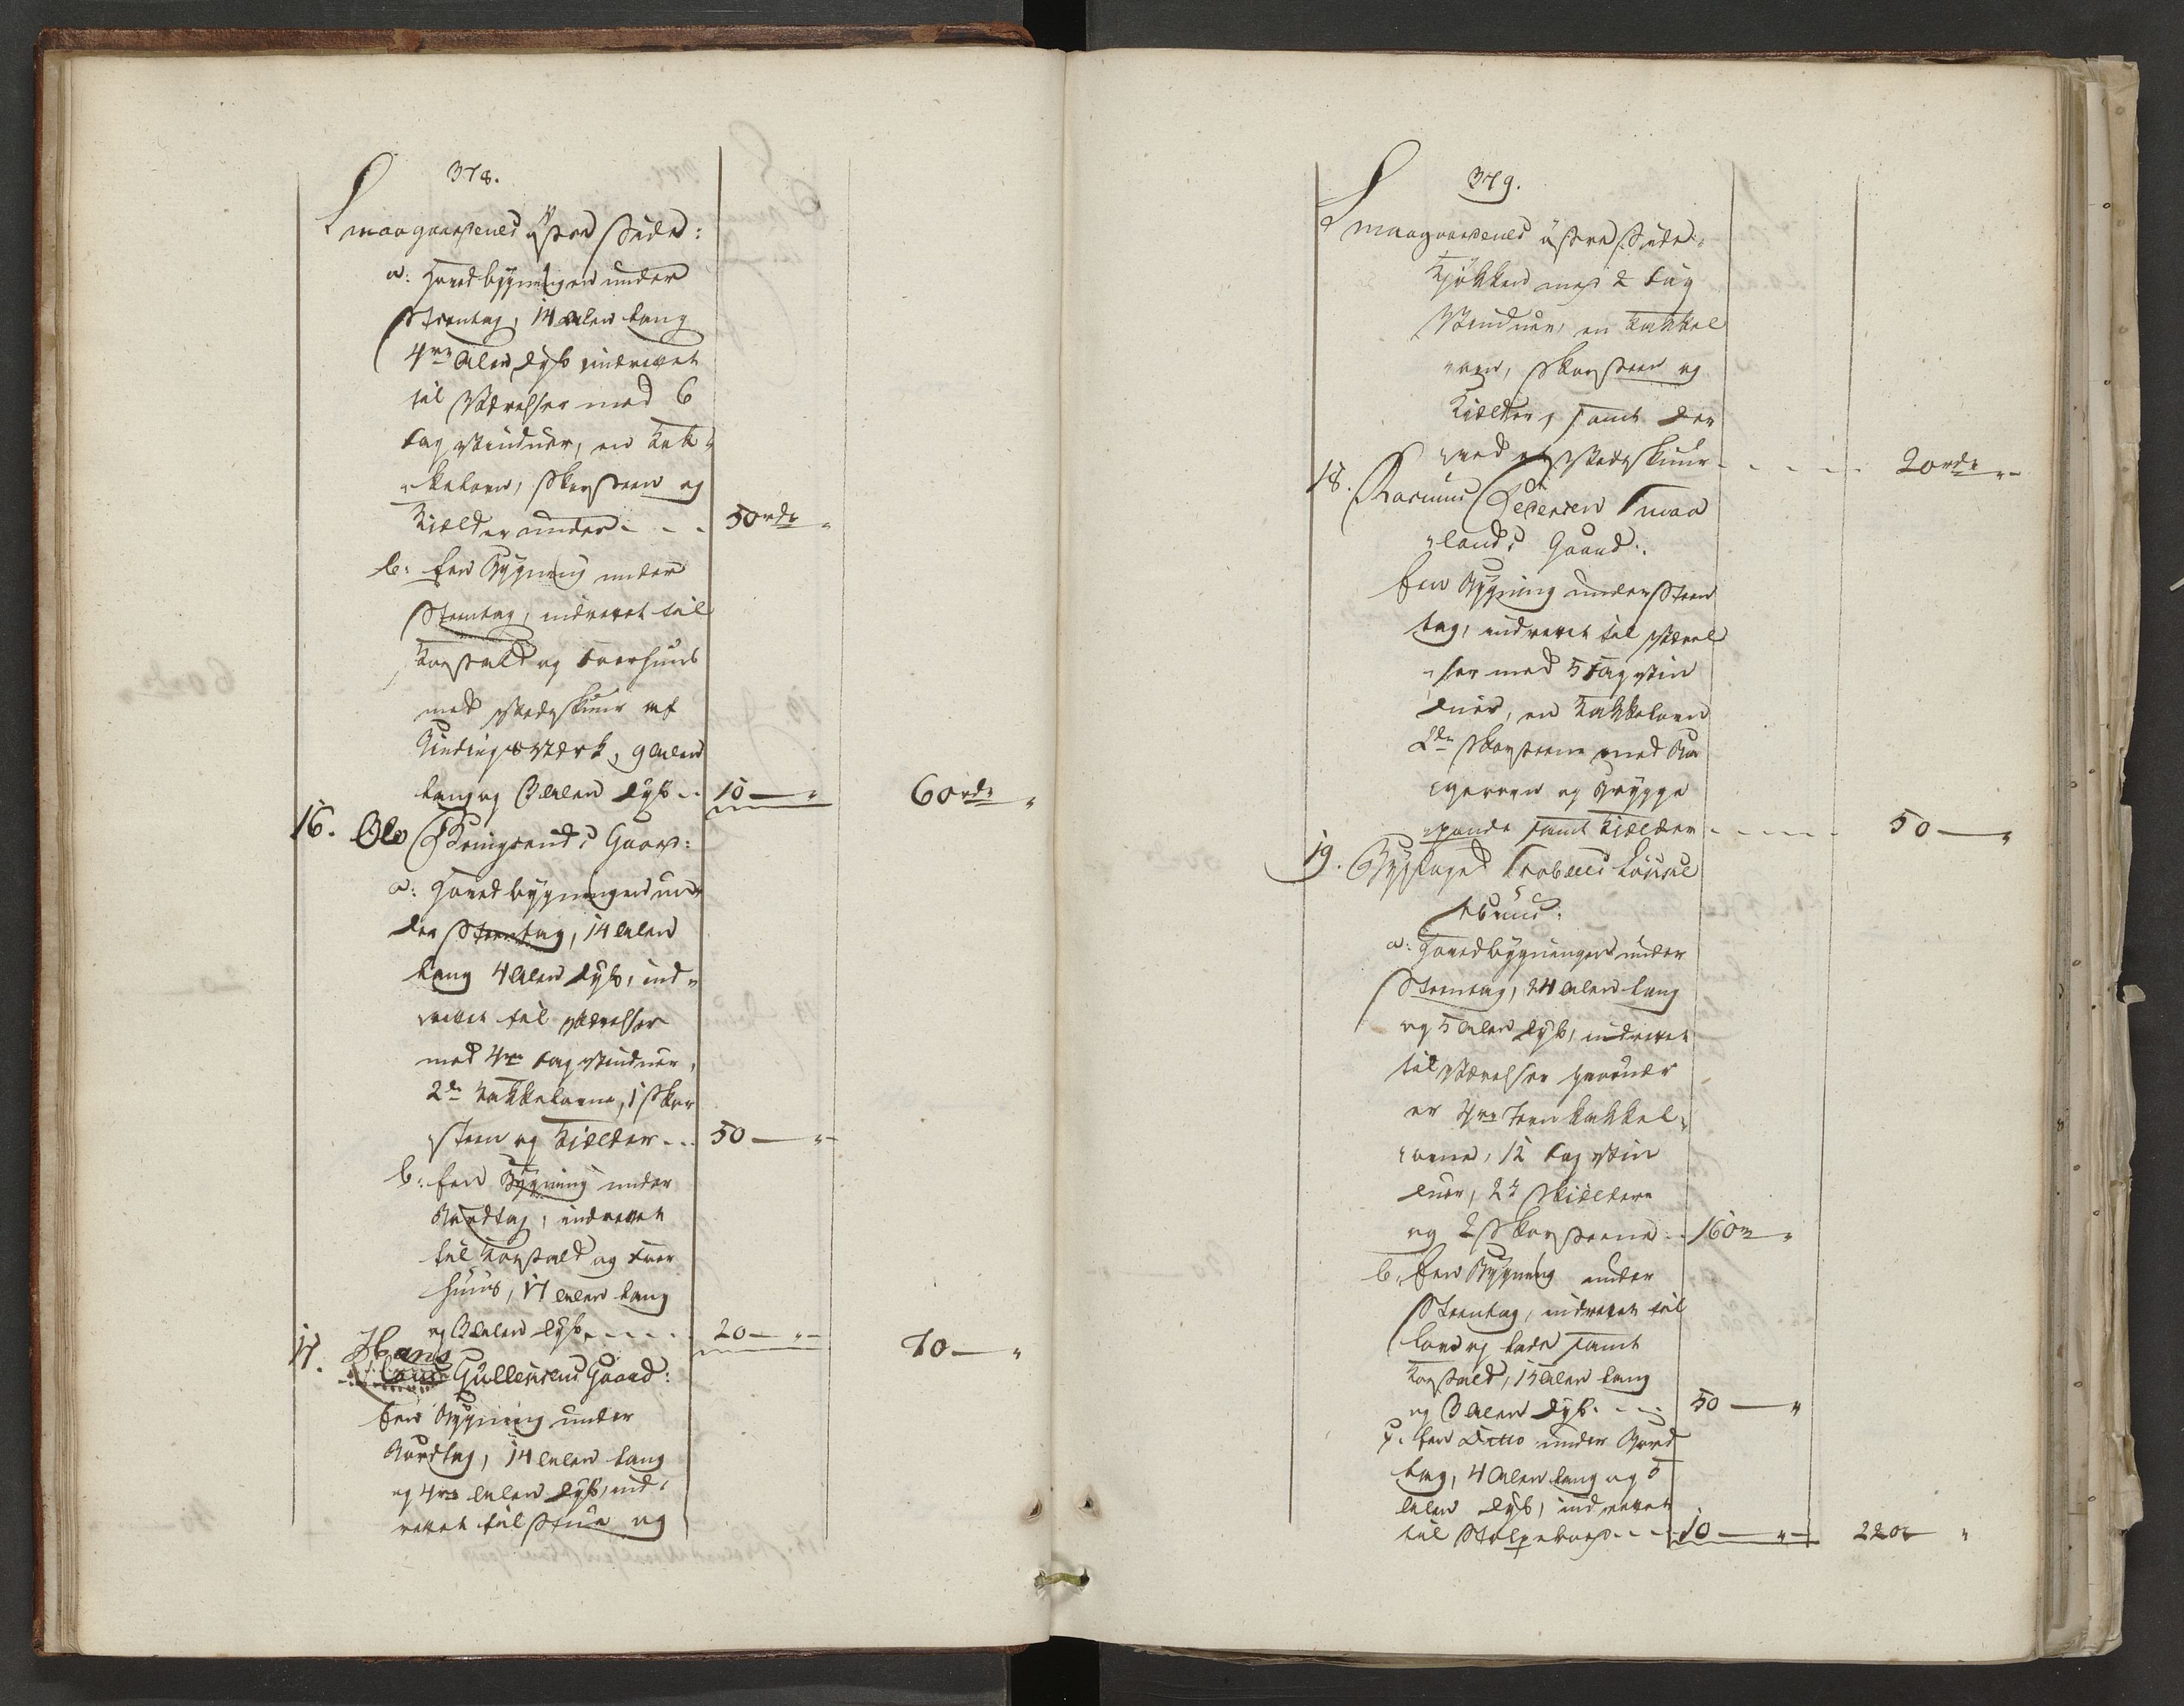 378.
Smaagadernes østre Side:
a: Hovedbygningen under
Steentag, 14 Alen lang
4re Alen dyb indrettet
til Værelser med 6
Fag Vinduer, en Kak-
kelovn, Skorsteen og
Kielder under - - - 50 rdr "
b: Een Bygning under
Steentag, indrettet til
Kostald og Foerhuus
med Vedeskuur af
Bindingsværk, 9 Alen
lang og 3 Alen dyb - - 10 — " 60 rdr "
16. Ole Gaard:
a: Hovedbygningen un-
der Steentag, 14 Alen
lang 4 Alen dyb, ind-
rettet til Værelser
med 4re Fag Vinduer,
2de Kakkelovne, 1 Skor
steen og Kielder - - - 50 — "
b: Een Bygning under
Bordtag, indrettet
til Kostald og Foer
huus, 17 Alen lang
og 3 Alen dyb - - - - 20 — " 70 — "
17. Hans
Gullensens Gaard:
Een Bygning under
Bordtag, 14 Alen lang
og 4re Alen dyb, ind-
rettet til Stue og
379.
Smaagadernes østre Side:
Kjøkken med 2 Fag
Vinduer, en Kakkel
ovn, Skorsteen og
Kielder, samt der
ved et Vedeskuur - - - - 20 rdr "
18. Rasmus Pedersen Smaa
lands Gaard:
Een Bygning under Steen
tag, indrettet til Værel
ser med 5 Fag Vin
duer, en Kakkelovn
2de Skorsteene med Ba
gerovn og Brygge
pande samt Kielder - - - - 50 — "
19. Byefoged
a: Hovedbygningen under
Steentag, 24 Alen lang
og 5 Alen dyb, indrettet
til Værelser hvorudi
er 4re Jern Kakkel-
ovne, 12 Fag Vin
duer, 2de Kieldere
og 2 Skorsteene - - 160 rdr "
b: Een Bygning under
Steentag, indrettet til
Loe og Lade samt
Kostald, 15 Alen lang
og 3 Alen dyb - - - 50 — "
c: Een Ditto under Bord
tag, 4 Alen lang og 5
Alen dyb, indrettet
til Stolpeboed - - - 10 — " 220 "